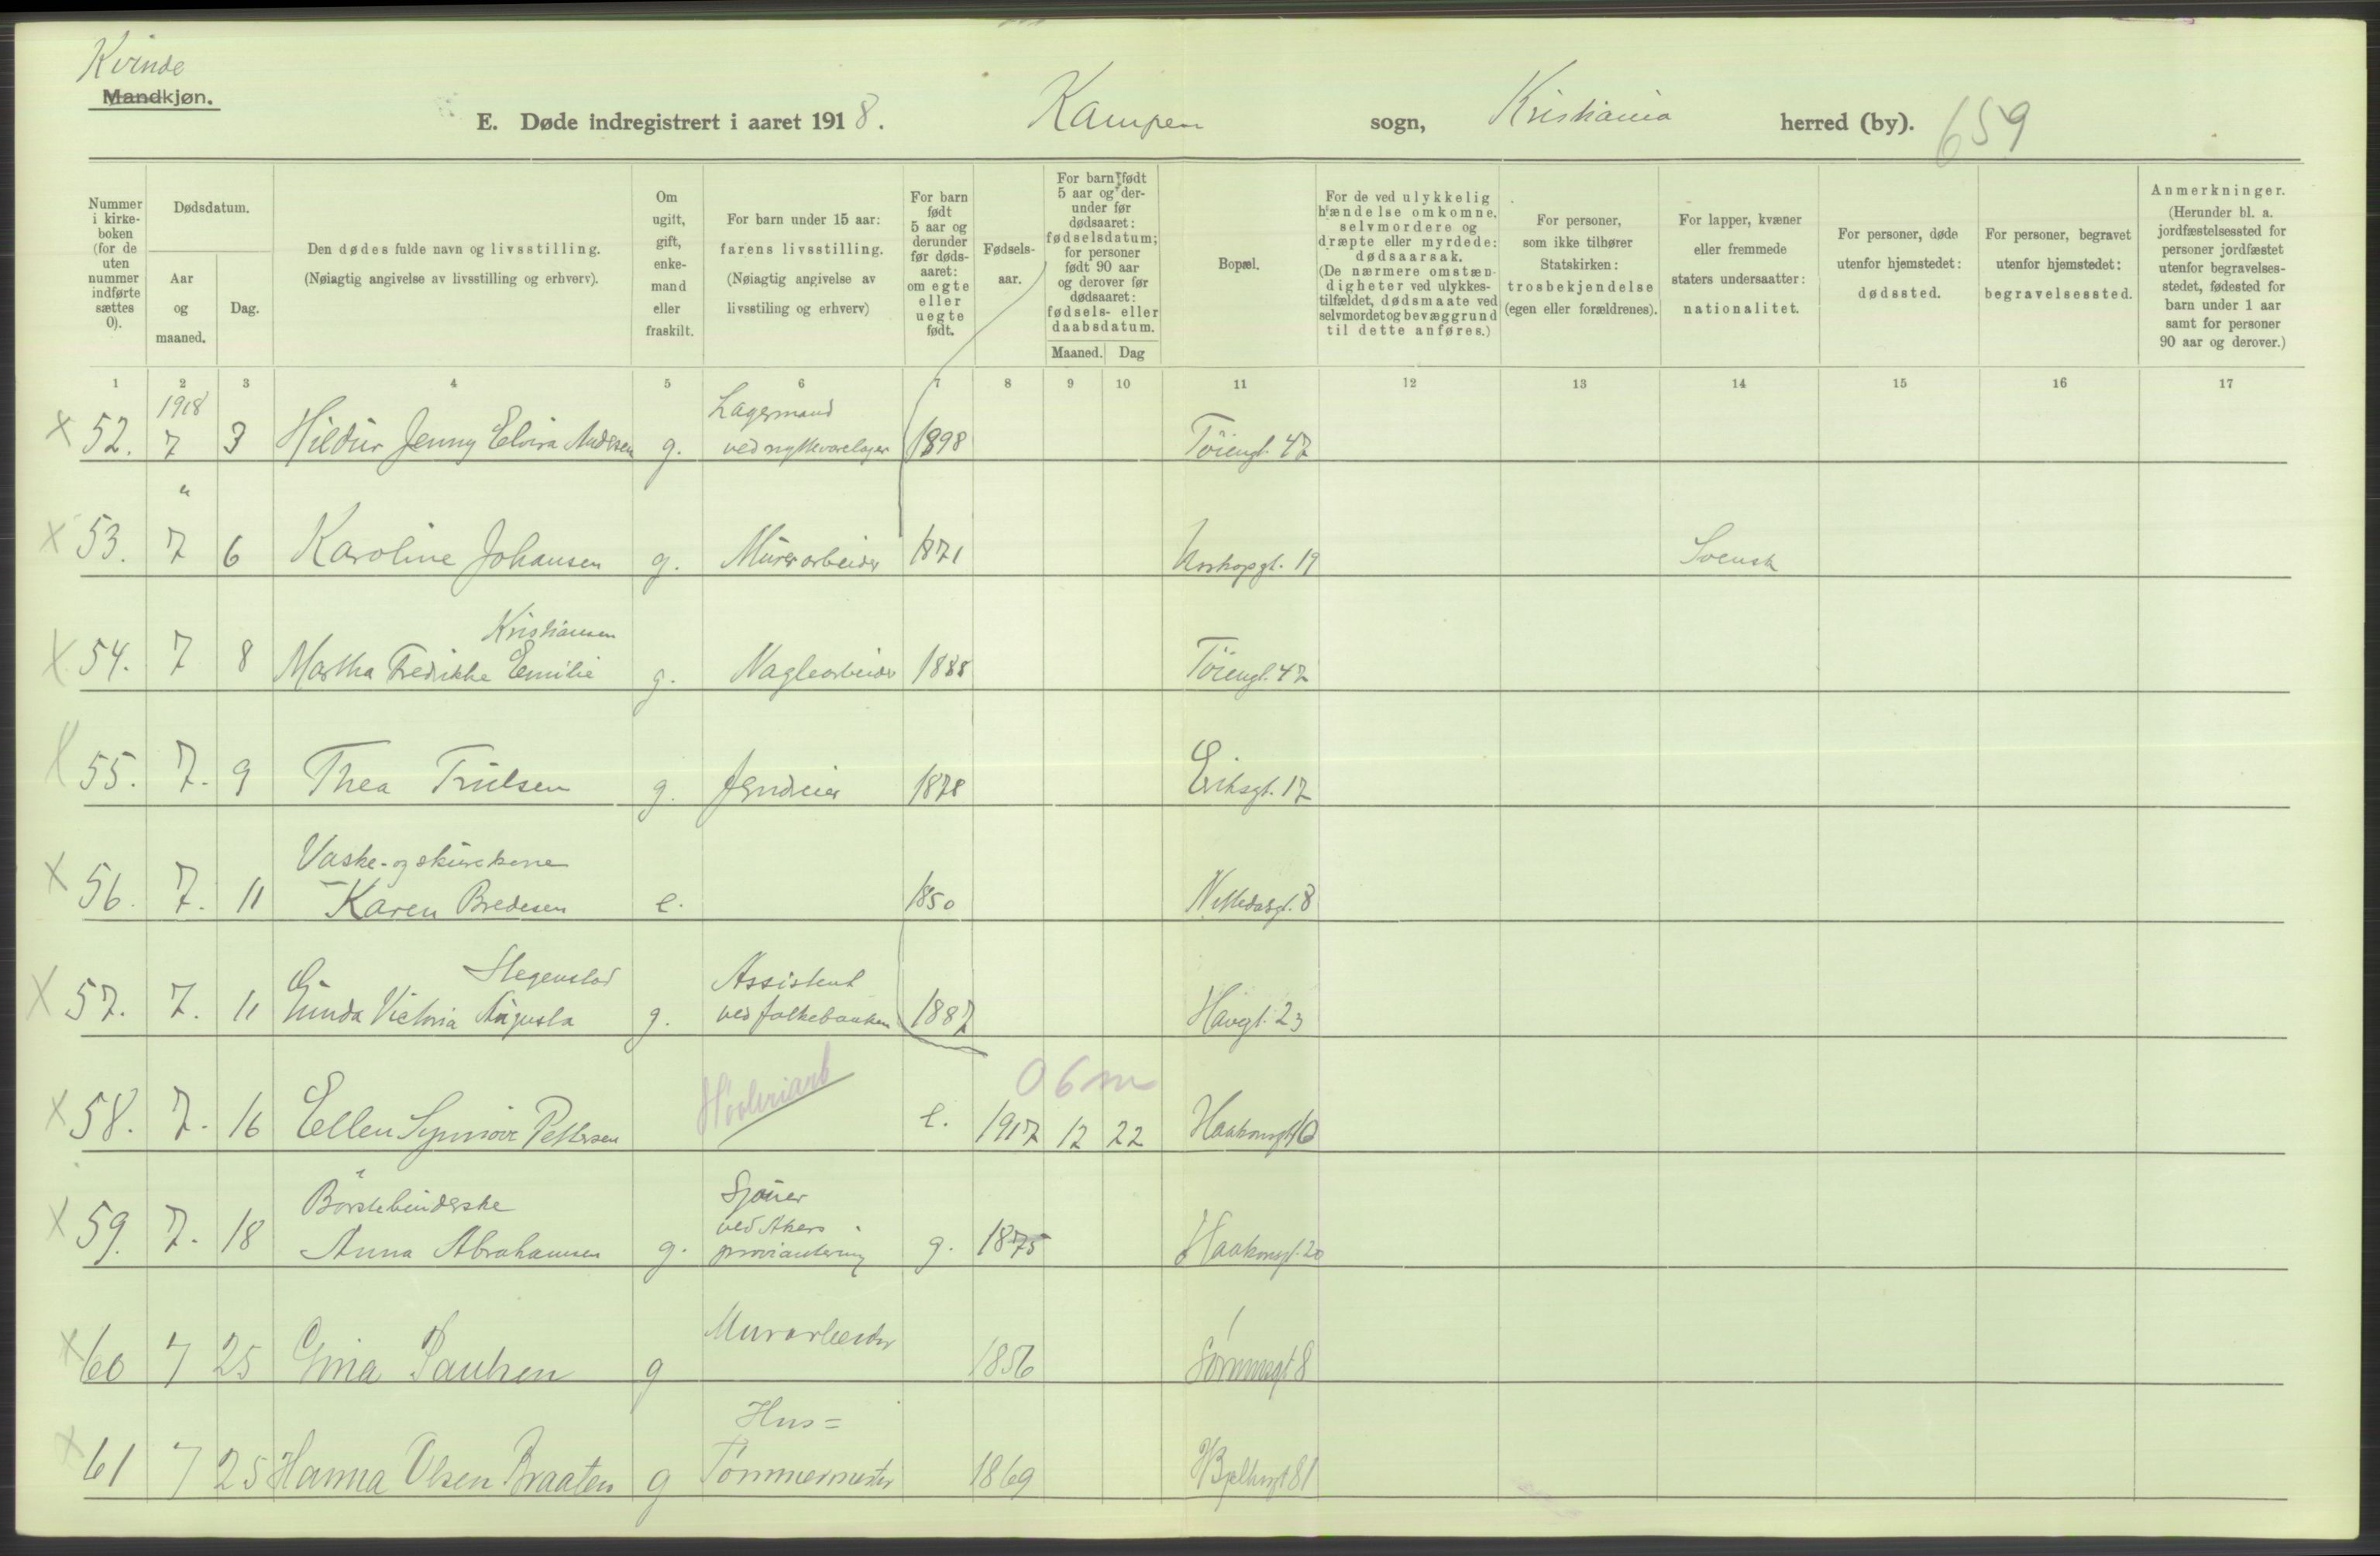 Kvinde
Mandkjøn.
E. Døde indregistrert i aaret 1918. Kampen sogn, Kristiania herred (by). 659
Nummer i kirke-boken (for de uten nummer indførte sættes 0).
Dødsdatum.
Aar og maaned.
Dag.
Den dødes fulde navn og livsstilling.
(Nøiagtig angivelse av livsstilling og erhverv).
Om ugift, gift, enke-mand eller fraskilt.
For barn under 15 aar: farens livsstilling.
(Nøiagtig angivelse av livsstiling og erhverv)
For barn født 5 aar og derunder før døds-aaret: om egte eller uegte født.
Fødsels-aar.
For barn født 5 aar og der-under før dødsaaret: fødselsdatum; for personer født 90 aar og derover før dødsaaret: fødsels- eller daabsdatum.
Maaned. Dag
Bopæl.
For de ved ulykkelig hændelse omkomne, selvmordere og dræpte eller myrdede: dødsaarsak.
(De nærmere omstæn-digheter ved ulykkes-tilfældet, dødsmaate ved selvmordet og bevæggrund til dette anføres.)
For personer, som ikke tilhører Statskirken: trosbekjendelse (egen eller forældrenes).
For lapper, kvæner eller fremmede staters undersaatter: nationalitet.
For personer, døde utenfor hjemstedet: dødssted.
For personer, begravet utenfor hjemstedet: begravelsessted.
Anmerkninger.
(Herunder bl. a. jordfæstelsessted for personer jordfæstet utenfor begravelses-stedet, fødested for barn under 1 aar samt for personer 90 aar og derover.)
1 2 3 4 5 6 7 8 9 10 11 12 13 14 15 16 17
1918 Lagermand
x 52. 7 3 Hildur Jenny Elvira Andersen g. 1898 Töiengt. 47
"
x 53. 7 6 Karoline Johansen g. Murerarbeider 1871 19 Svensk
Kristiansen
x 54. 7 8 Martha Fredrikke Emilie g. Naglearbeider 1888 Töiengt. 47
x 55. 7. 9 Thea Trulsen g. 1878 Eriksgt. 17
Vaske- og skurekone
x 56. 7. 11 Karen Bredesen e. 1850 8
Stegenstad Assistent
x 57. 7. 11 Gunda Victoria Augusta g. ved folkebanken 1887 Haugt. 23
06m
x 58. 7. 16 Ellen Synnöve Pettersen e. 1917 12 22 Haakonsgt.
Börstebinderske Sjauer
ved Akers
x 59. 7. 18 Anna Abrahamsen g. proviantering g. 1875 Haakonsgt. 20
Murarbeider
x 60 7 25 Gina Paulsen g 1856 8
Hus=
x 61 7 25 Hanna Olsen Braaten g Tömmermester 1869 81